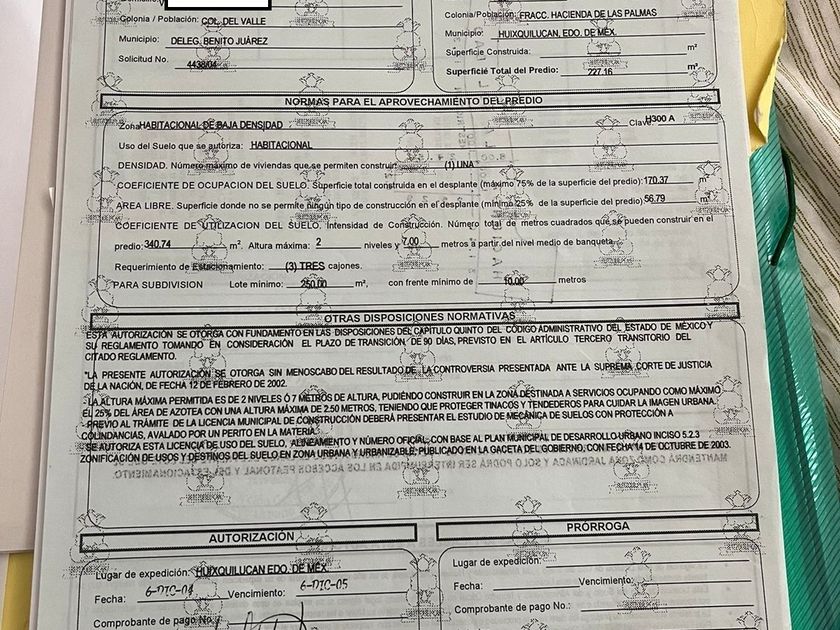 Colonia / Población: COL. DEL VALLE
Municipio: DELEG. BENITO JUÁREZ
Solicitud No. 4438/04
Colonia/Población: FRACC. HACIENDA DE LAS PALMAS
Municipio: HUIXQUILUCAN, EDO. DE MÉX.
Superficie Construida: m²
Superficie Total del Predio: 227.16 m²
NORMAS PARA EL APROVECHAMIENTO DEL PREDIO
Zona HABITACIONAL DE BAJA DENSIDAD Clave: H300 A
Uso del Suelo que se autoriza: HABITACIONAL
DENSIDAD. Número máximo de viviendas que se permiten construir: (1) UNA
COEFICIENTE DE OCUPACION DEL SUELO. Superficie total construida en el desplante (máximo 75% de la superficie del predio): 170.37 m²
AREA LIBRE. Superficie donde no se permite ningún tipo de construcción en el desplante (mínimo 25% de la superficie del predio) 56.79 m²
COEFICIENTE DE UTILIZACION DEL SUELO. Intensidad de Construcción. Número total de metros cuadrados que se pueden construir en el
predio: 340.74 m². Altura máxima: 2 niveles y 7.00 metros a partir del nivel medio de banqueta.
Requerimiento de Estacionamiento: (3) TRES cajones.
PARA SUBDIVISION Lote mínimo: 250.00 m², con frente mínimo de 10.00 metros
OTRAS DISPOSICIONES NORMATIVAS
ESTA AUTORIZACIÓN SE OTORGA CON FUNDAMENTO EN LAS DISPOSICIONES DEL CAPITULO QUINTO DEL CÓDIGO ADMINISTRATIVO DEL ESTADO DE MÉXICO Y
SU REGLAMENTO TOMANDO EN CONSIDERACIÓN EL PLAZO DE TRANSICIÓN, DE 90 DÍAS, PREVISTO EN EL ARTÍCULO TERCERO TRANSITORIO DEL
CITADO REGLAMENTO.
*LA PRESENTE AUTORIZACIÓN SE OTORGA SIN MENOSCABO DEL RESULTADO DE LA CONTROVERSIA PRESENTADA ANTE LA SUPREMA CORTE DE JUSTICIA
DE LA NACIÓN, DE FECHA 12 DE FEBRERO DE 2002.
LA ALTURA MÁXIMA PERMITIDA ES DE 2 NIVELES Ó 7 METROS DE ALTURA, PUDIÉNDO CONSTRUIR EN LA ZONA DESTINADA A SERVICIOS OCUPANDO COMO MÁXIMO
EL 25% DEL ÁREA DE AZOTEA CON UNA ALTURA MÁXIMA DE 2.50 METROS, TENIENDO QUE PROTEGER TINACOS Y TENDEDEROS PARA CUIDAR LA IMAGEN URBANA.
PREVIO AL TRÁMITE DE LA LICENCIA MUNICIPAL DE CONSTRUCCIÓN DEBERÁ PRESENTAR EL ESTUDIO DE MECÁNICA DE SUELOS CON PROTECCIÓN A
COLINDANCIAS, AVALADO POR UN PERITO EN LA MATERIA.
SE AUTORIZA ESTA LICENCIA DE USO DEL SUELO, ALINEAMIENTO Y NÚMERO OFICIAL, CON BASE AL PLAN MUNICIPAL DE DESARROLLO URBANO INCISO 5.2.3
ZONIFICACIÓN DE USOS Y DESTINOS DEL SUELO EN ZONA URBANA Y URBANIZABLE, PUBLICADO EN LA GACETA DEL GOBIERNO, CON FECHA 14 DE OCTUBRE DE 2003.
MANTENDRÁ COMO ZONA JARDINADA Y SOLO PODRÁ SER INTERRUMPIDA EN LOS ACCESOS PEATONAL Y DEL ESTACIONAMIENTO
AUTORIZACIÓN
Lugar de expedición: HUIXQUILUCAN EDO. DE MÉX.
Fecha: 6-DIC-04 Vencimiento: 6-DIC-05
Comprobante de pago No.:
PRÓRROGA
Lugar de expedición:
Fecha: Vencimiento:
Comprobante de pago No.: